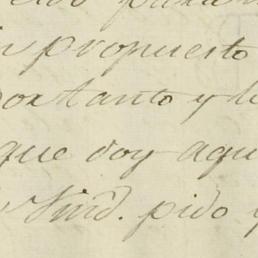 propuesto
por tanto y
que doy aqu
Vmd. pido y